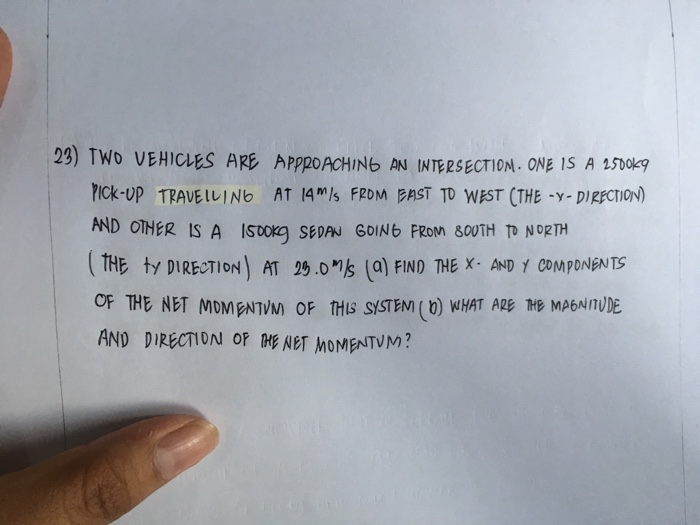 23) TWO VEHICLES ARE APPROACHING AN INTERSECTION. ONE IS A 2500kg
PICK-UP TRAVELLING AT 14 m/s FROM EAST TO WEST (THE -X- DIRECTION)
AND OTHER IS A 1500kg SEDAN GOING FROM SOUTH TO NORTH
(THE +y DIRECTION) AT 23.0 m/s (a) FIND THE X- AND Y COMPONENTS
OF THE NET MOMENTUM OF THIS SYSTEM (b) WHAT ARE THE MAGNITUDE
AND DIRECTION OF THE NET MOMENTUM?